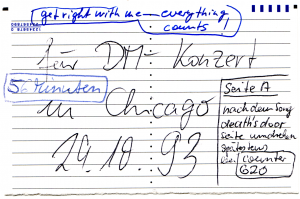 get right with me - everything
counts!
für DM - Konzert
56 Minuten
in Chicago
29.10.93
Seite A
nach dem Song
death's door
Seite umdrehen
spätestens
bei counter
620